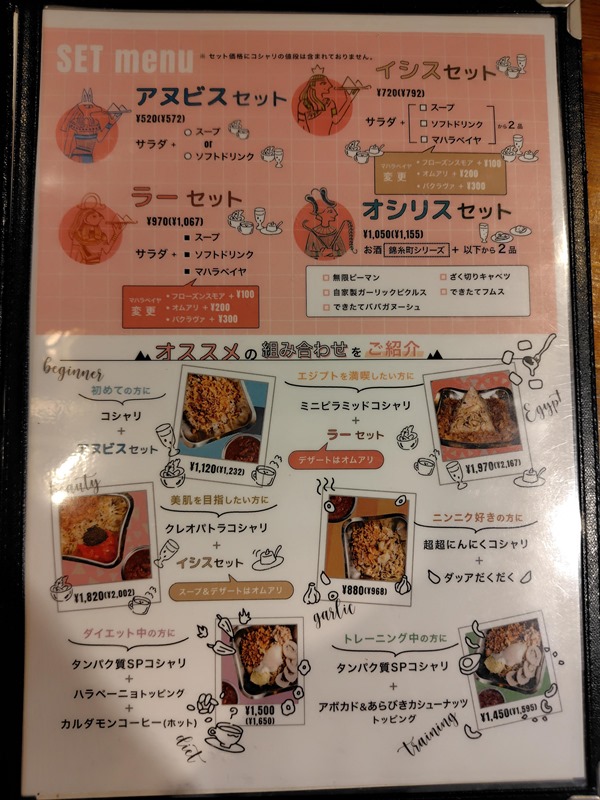 SET menu
※ セット価格にコシャリの値段は含まれておりません。
アヌビスセット
¥520(¥572)
サラダ +
スープ
or
ソフトドリンク
イシスセット
¥720(¥792)
サラダ +
スープ
ソフトドリンク
マハラベイヤ
から2品
マハラベイヤ
変更
・フローズンスモア + ¥100
・オムアリ + ¥200
・バクラヴァ + ¥300
ラーセット
¥970(¥1,067)
サラダ +
スープ
ソフトドリンク
マハラベイヤ
マハラベイヤ
変更
・フローズンスモア + ¥100
・オムアリ + ¥200
・バクラヴァ + ¥300
オシリスセット
¥1,050(¥1,155)
お酒 錦糸町シリーズ + 以下から2品
無限ピーマン
ざく切りキャベツ
自家製ガーリックピクルス
できたてフムス
できたてババガヌーシュ
オススメの組み合わせをご紹介
beginner
初めての方に
コシャリ
+
アヌビスセット
¥1,120(¥1,232)
エジプトを満喫したい方に
ミニピラミッドコシャリ
+
ラーセット
デザートはオムアリ
Egypt
¥1,970(¥2,167)
beauty
美肌を目指したい方に
クレオパトラコシャリ
+
イシスセット
スープ&デザートはオムアリ
¥1,820(¥2,002)
ニンニク好きの方に
超超にんにくコシャリ
+
ダッアだくだく
¥880(¥968)
garlic
ダイエット中の方に
タンパク質SPコシャリ
+
ハラペーニョトッピング
+
カルダモンコーヒー(ホット)
¥1,500
(¥1,650)
diet
トレーニング中の方に
タンパク質SPコシャリ
+
アボカド&あらびきカシューナッツ
トッピング
¥1,450(¥1,595)
training